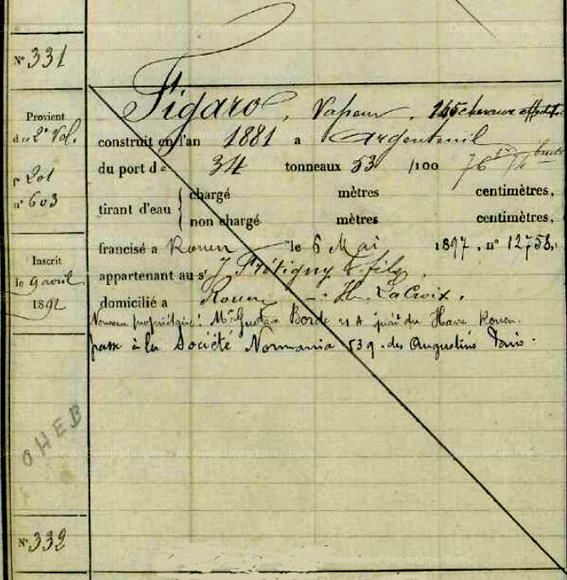 N° 331
Figaro, Vapeur. 145 chevaux effectifs
Provient
du 2e Vol.
construit en l'an 1881 a Argenteuil
du port de 34 tonneaux 53 /100 76 tx
f° 201
n° 603
tirant d'eau { chargé mètres centimètres,
non chargé mètres centimètres,
Inscrit
le 9 avril
1892
francisé a Rouen le 6 Mai 1897, n° 12758,
appartenant au sr J. Prétigny & fils,
domicilié a Rouen - H. LaCroix.
Nouveau propriétaire: Mr Gustav Borde 21 A quai du Havre Rouen.
passe à la Société Normania 53 q. des Augustins Paris.
OHEB
N° 332